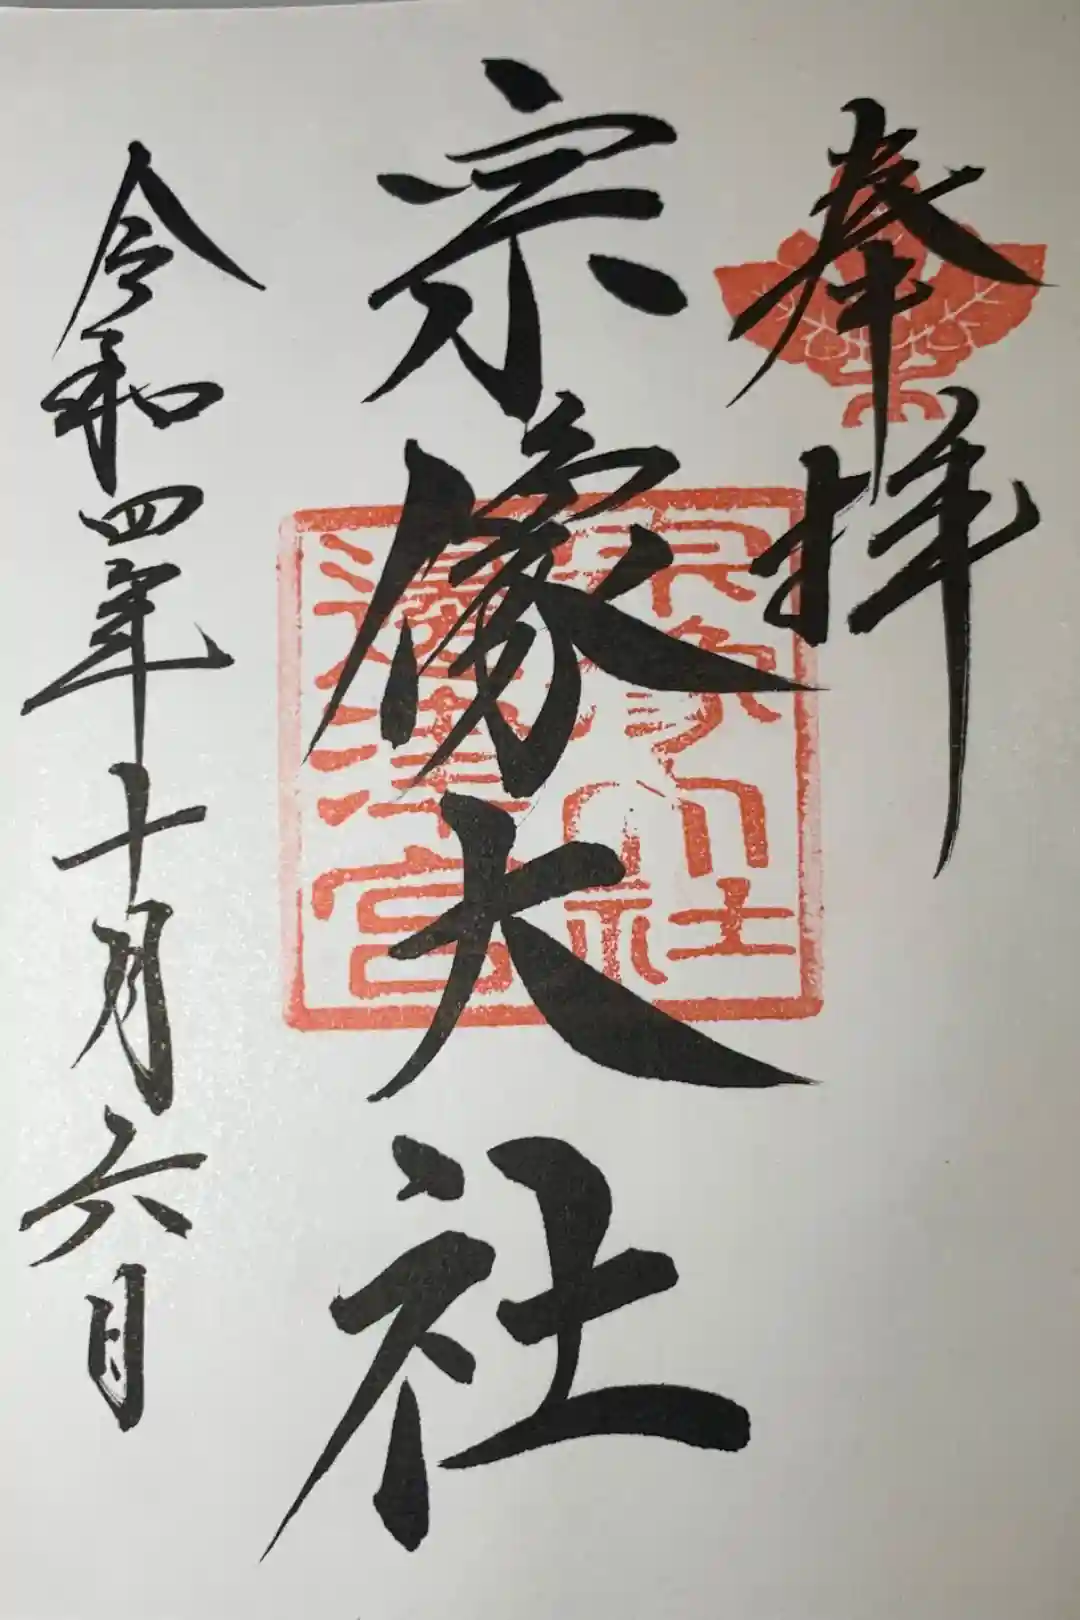 奉拝
宗像大社
令和四年十月六日
宗像大社
邊津宮